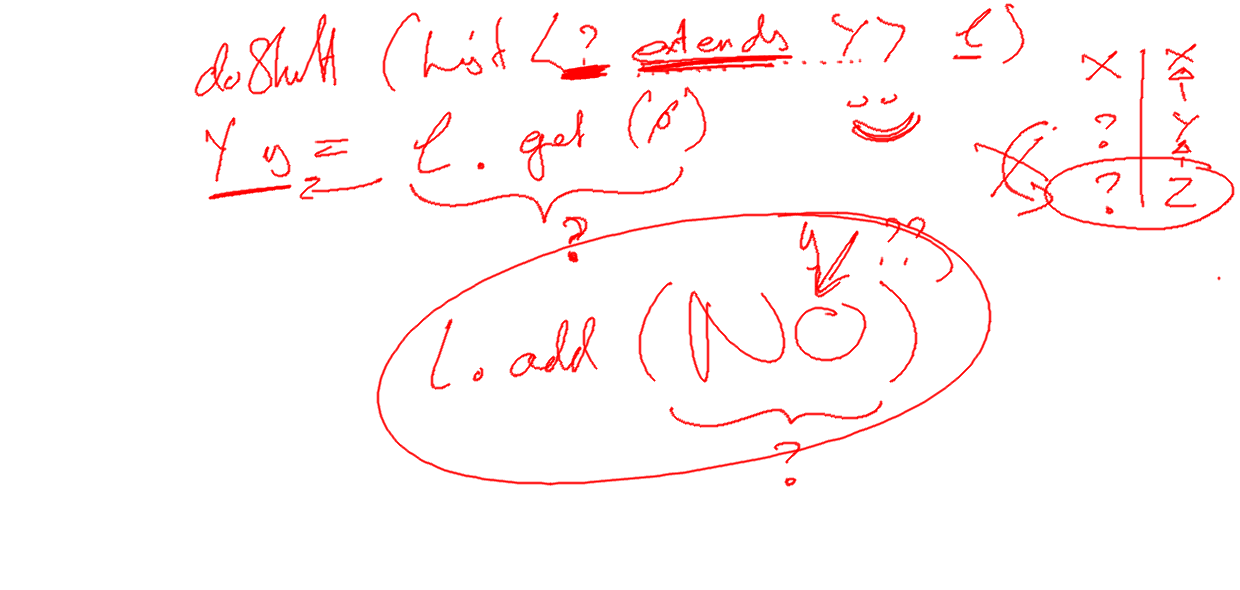 doStuff (List <? extends Y> l)
Y y = l.get(0)
?
l.add (NO)
?
X | X
? | Y
? | Z